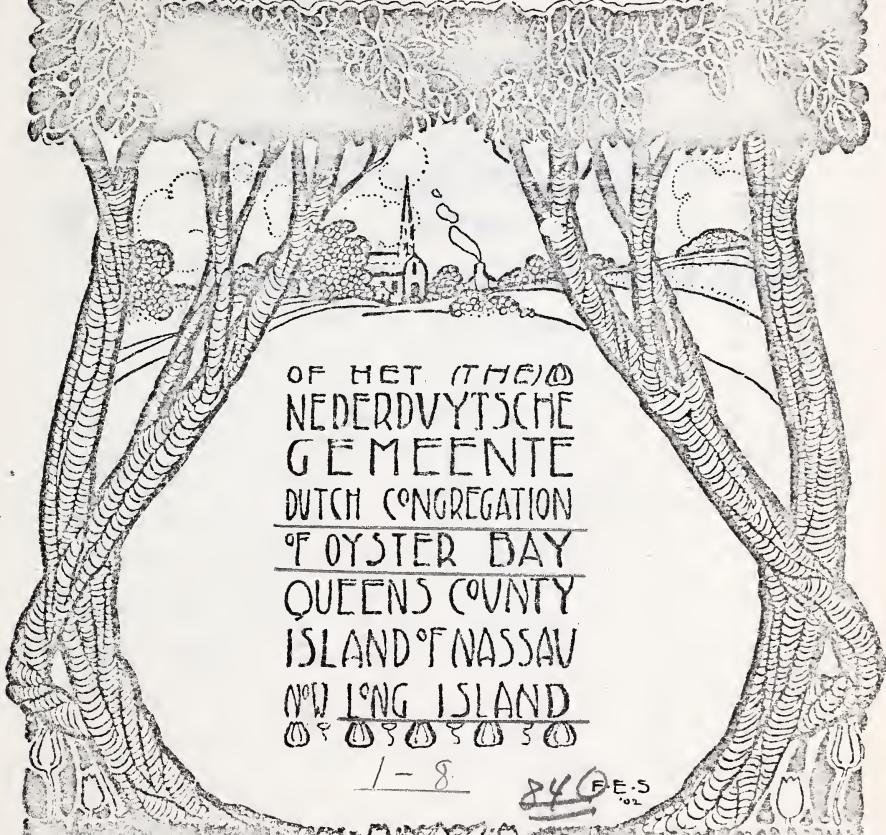 OF HET (THE)
NEDERDVYTSCHE
GEMEENTE
DUTCH CONGREGATION
OF OYSTER BAY
QUEENS COVNTY
ISLAND OF NASSAV
NOW LONG ISLAND
1-8
840 F.E.S
'02